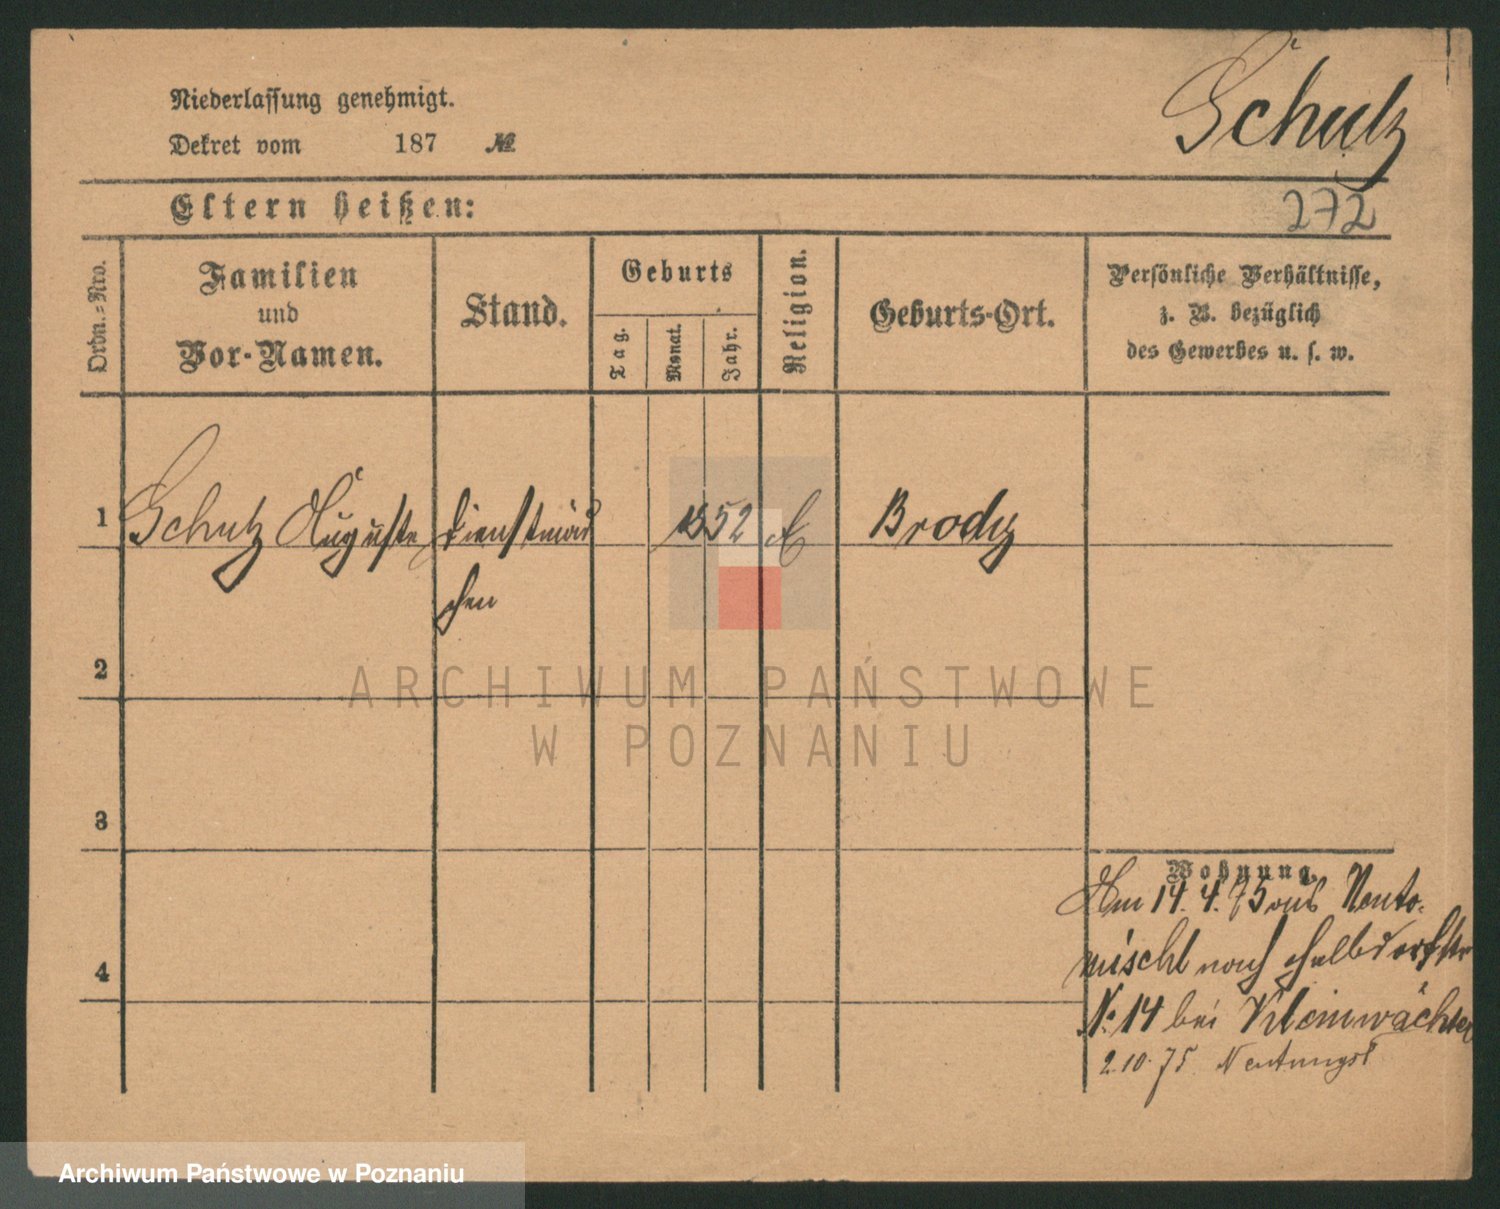 Niederlassung genehmigt.
Dekret vom 187 №
Schulz
Eltern heißen:
272
Ordn.=Nro.
Familien
und
Vor-Namen.
Stand.
Geburts
Tag.
Monat.
Jahr.
Religion.
Geburts-Ort.
Persönliche Verhältnisse,
z. B. bezüglich
des Gewerbes u. s. w.
1
Schulz Auguste
Dienstmäd
chen
1852
Brody
2
ARCHIWUM PAŃSTWOWE
W POZNANIU
3
Wohnung.
Am 14. 4. 75 aus Neuto-
mischl nach Halbdorfstr
N: 14 bei Kleinwächter
2. 10. 75
4
Archiwum Państwowe w Poznaniu